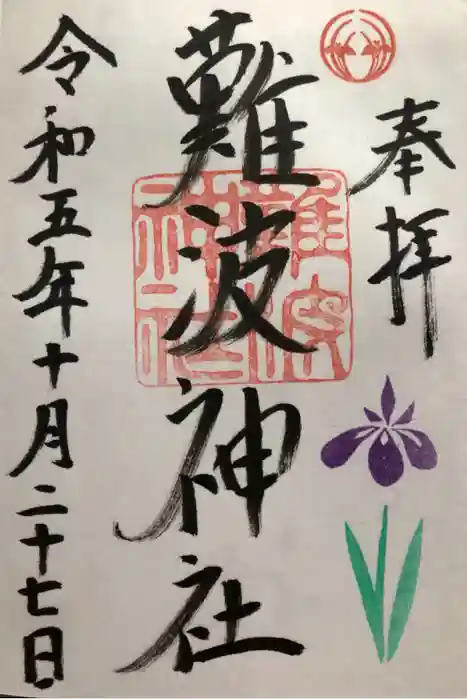 奉拝
難波神社
令和五年十月二十七日
難波神社